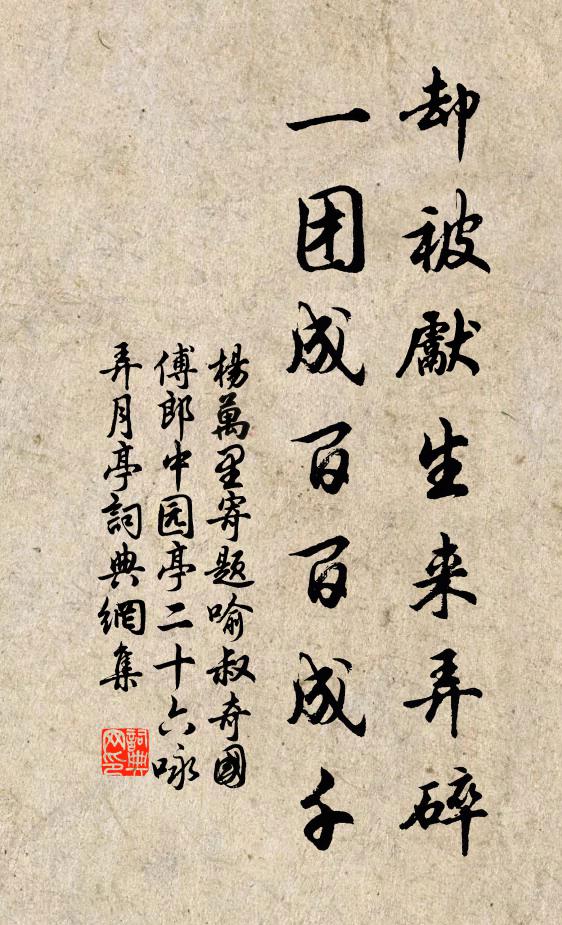 却被獻生来弄碎
一团成百百成千
楊萬里寄题喻叔奇國
傅郎中园亭二十六咏
弄月亭詞典網集
詞典网印